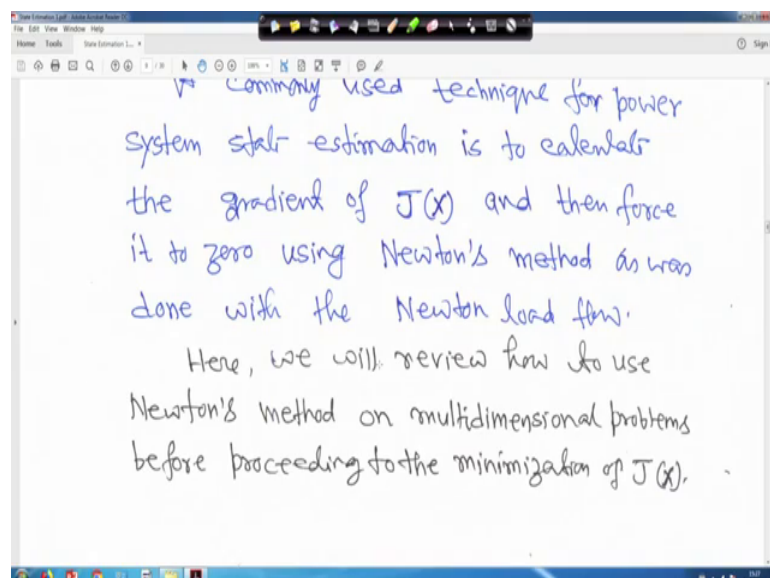 State Estimation 1.pdf - Adobe Acrobat Reader DC
File Edit View Window Help
Home Tools State Estimation 1... ×
Sign
commonly used technique for power
system state estimation is to calculate
the gradient of J(x) and then force
it to zero using Newton's method as was
done with the Newton load flow.
Here, we will review how to use
Newton's method on multidimensional problems
before proceeding to the minimization of J(x).